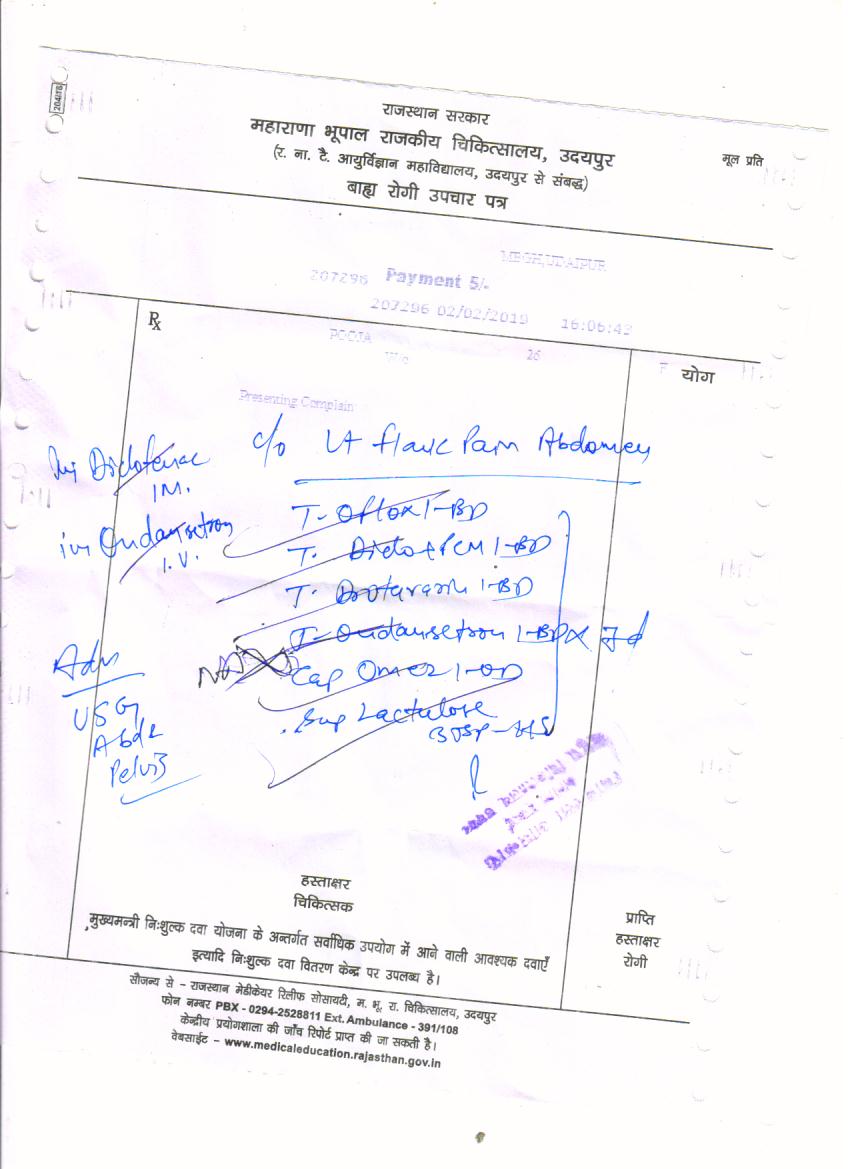 204/18
राजस्थान सरकार
महाराणा भूपाल राजकीय चिकित्सालय, उदयपुर
मूल प्रति
(र. ना. टै. आयुर्विज्ञान महाविद्यालय, उदयपुर से संबद्ध)
बाह्य रोगी उपचार पत्र
MEGH,UDAIPUR
207296 Payment 5/-
207296 02/02/2019 16:06:43
Rx
POOJA 26 F
W/o
योग
Presenting Complain
c/o Lt flank Pain Abdomen
Inj Diclofenac
IM.
inj Ondansetron
I.V.
T- Oflox 1-BD
T. Diclo+PCM 1-BD
T. 1-BD
T- Ondansetron 1-BD x 7d
Cap Omez 1-OD
Syp Lactulose
3TSP-HS
Adv
USG
Abd &
Pelvis
हस्ताक्षर
चिकित्सक
मुख्यमन्त्री निःशुल्क दवा योजना के अन्तर्गत सर्वाधिक उपयोग में आने वाली आवश्यक दवाएँ
इत्यादि निःशुल्क दवा वितरण केन्द्र पर उपलब्ध है।
प्राप्ति
हस्ताक्षर
रोगी
सौजन्य से - राजस्थान मेडीकेयर रिलीफ सोसायटी, म. भू. रा. चिकित्सालय, उदयपुर
फोन नम्बर PBX - 0294-2528811 Ext. Ambulance - 391/108
केन्द्रीय प्रयोगशाला की जाँच रिपोर्ट प्राप्त की जा सकती है।
वेबसाईट - www.medicaleducation.rajasthan.gov.in